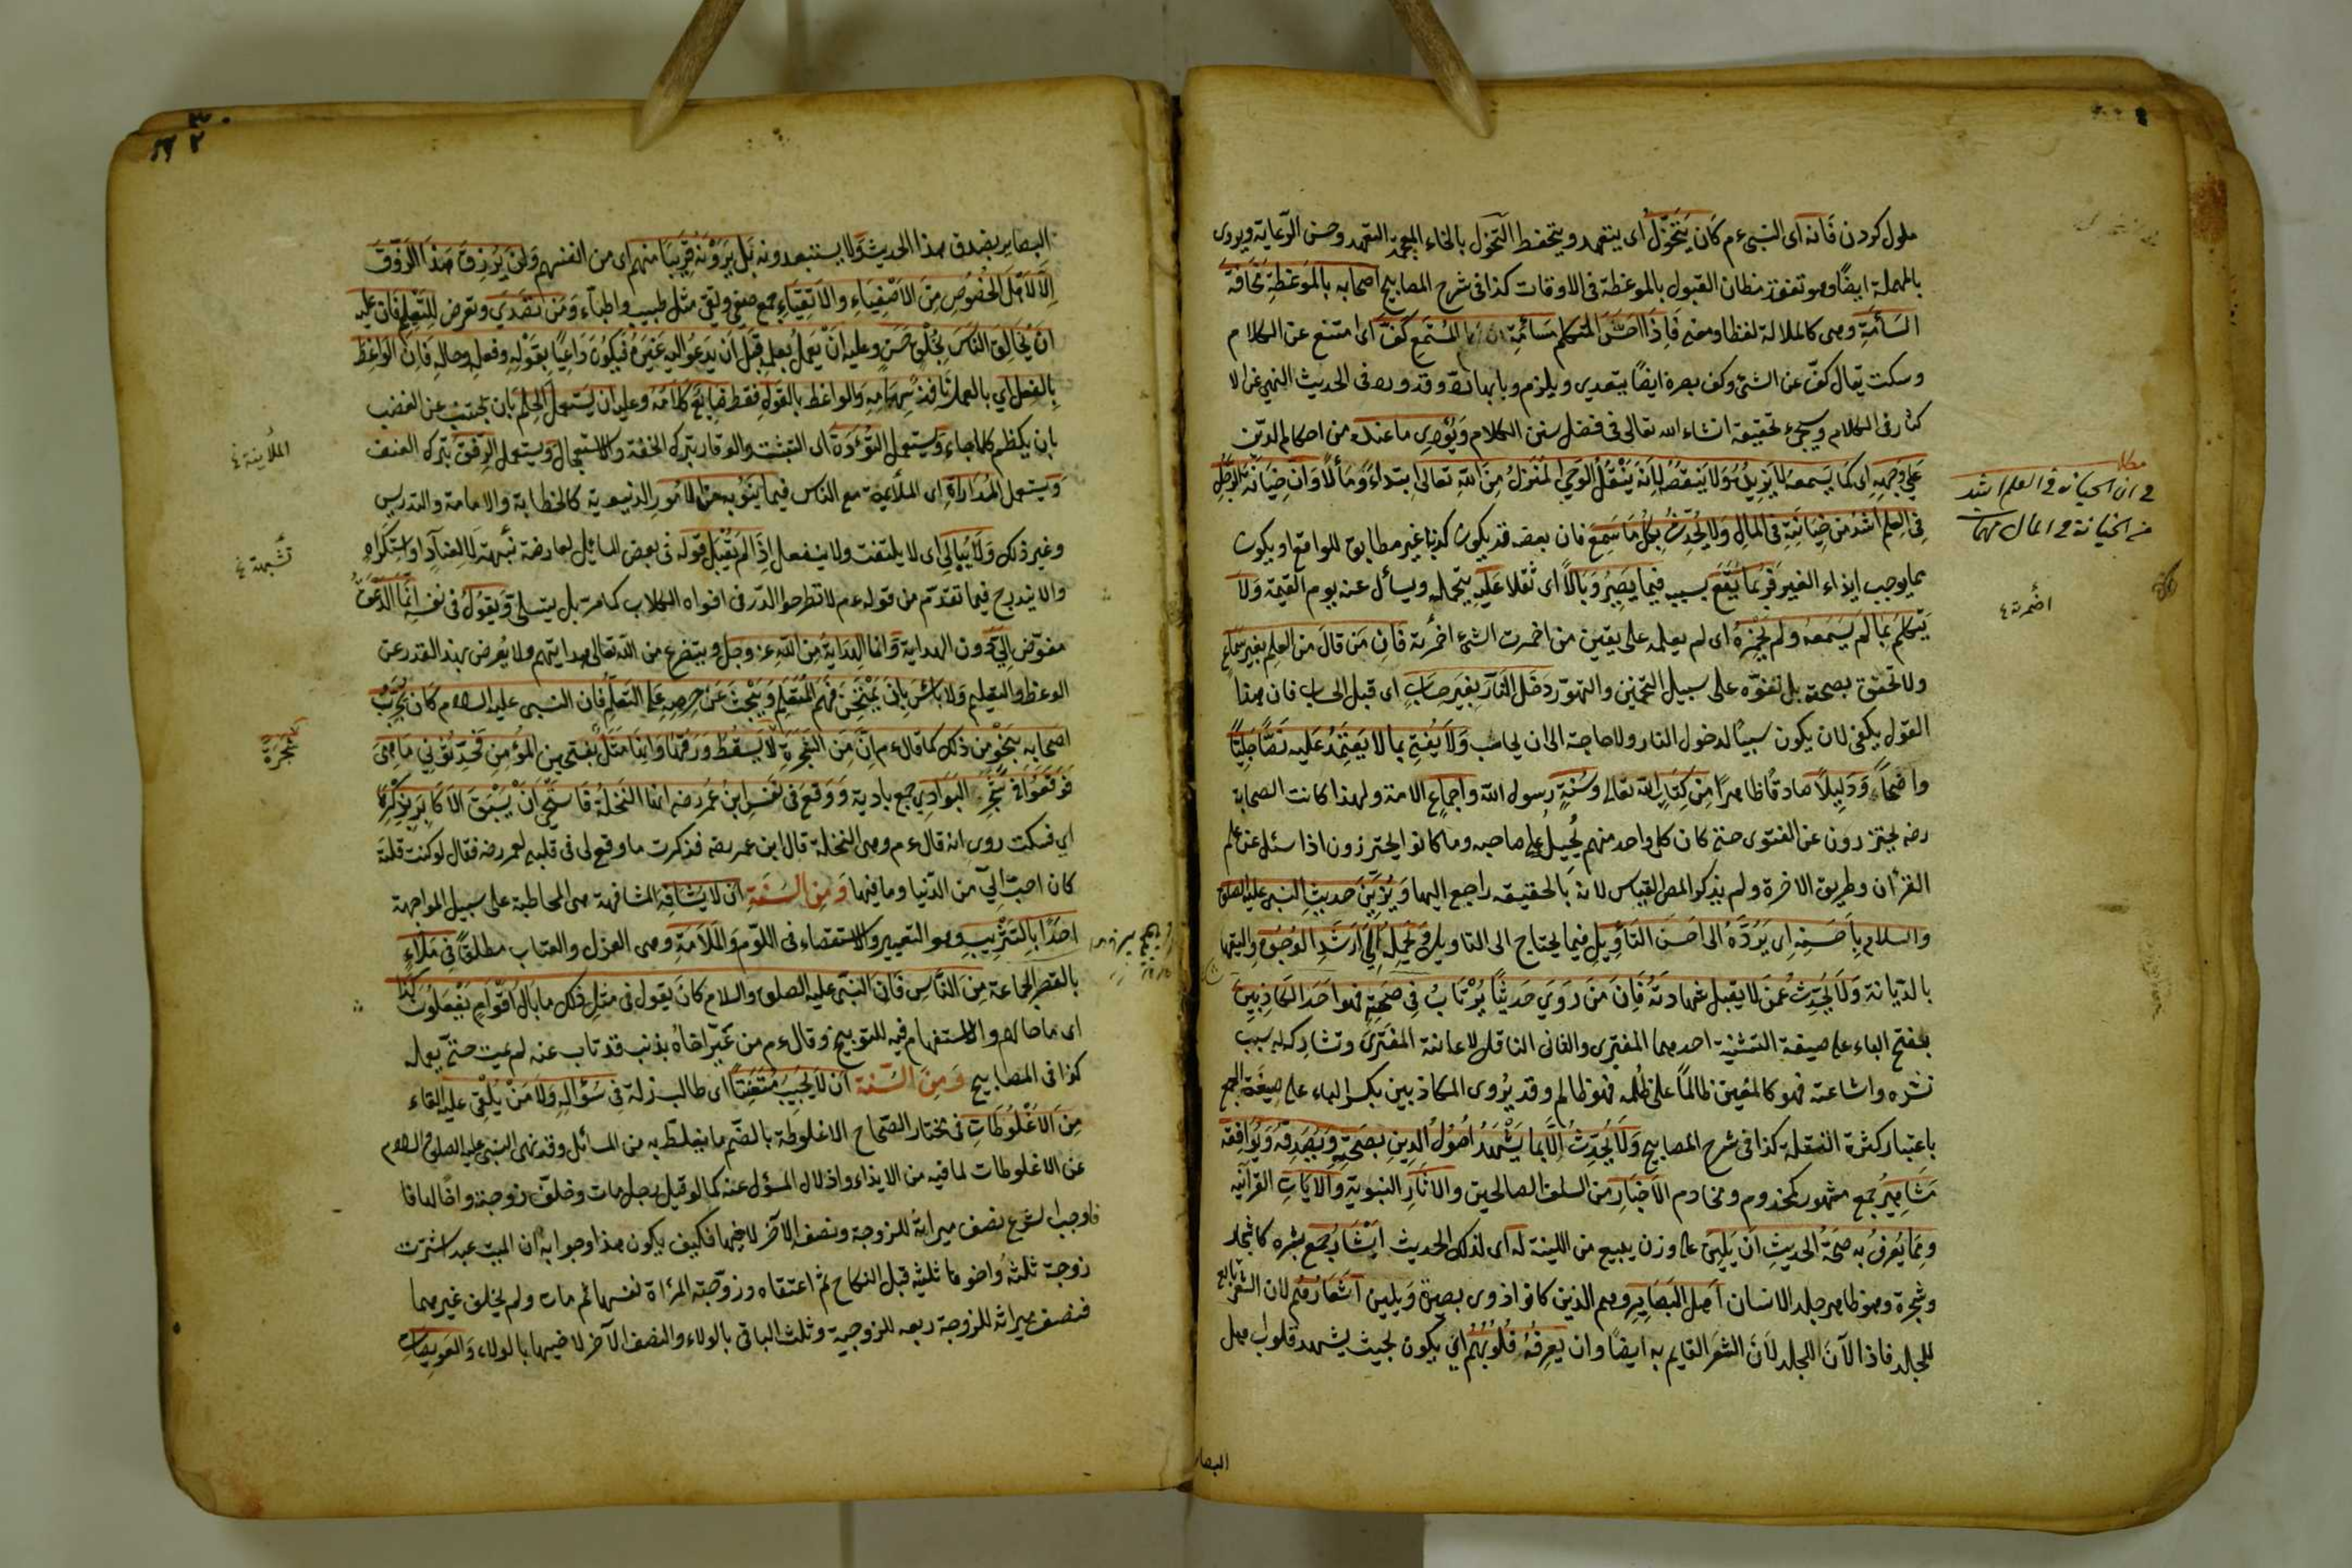 ملول كردن فَانه اى النبىءم كَان يَتَخَوَّلُ اى يتعهد ويتحفظ التخول بالخاء المعجمة التعهد وحسن الرّعاية ويروى
بالمهملة ايضًا وهو تفقد مظان القبول بالموعظة فى الاوقات كذا فى شرح المصابيح اصحابه بالمَوعَظِةِ مَخَافَةَ
السَأمَةِ وهى كالملالة لفظا ومعنى فَاِذَا احَسَّ المتكلم سَائَمةِ المُستَمِع كَفَّ اى امتنع عن الكلام
وسكت يقال كفّ عن الشئ وكف بصره ايضًا يتعدى ويلزم وبابهما ردّ وقد ورد فى الحديث النهى عن الا
كثار فى الكلام وسيجىء تحقيقه انشاء الله تعالى فى فصل سنن الكلام وَيُؤدِى ما عنده من احكام الدين
عَلى وَجهِهِ اى كَمَا يَسمعهُ لا يَزيدُهُ وَلا يَنقصُهُ لِاَنهَ يَنقُلُ الوَحىَ المُنزلُ مِنَ اللهِ تعالى ابتداءً ومَأٓلًا وَاَنّ خِيَانَةَ الرَّجُلِ
فِى العِلمِ اشَدُ من خِيَانَتِهِ فى المَالِ وَلا يُحَدِّثُ بِكُلِ مَا سَمِعَ فان بعضه قد يكون كذبًا غير مطابق للواقع او يكون
مما يوجب ايذاء الغير فَرُبمَا يَقَعُ بسببه فيمَا يَصِيرُ وَبَالًا اى ثقلا عَلَيهِ يتحمله ويسأل عنه يوم القيمة وَلاَ
يَتَكَلمَ بمَا لَم يَسمَعهُ ولَم يَحِزهُ اى لم يعلمه على يقين من اضمرت الشئ اضمرته فَاِن مَن قالَ مِن العِلم بغيرِ سَمَاعٍ
ولا تحقق بصحته بل تفوّه على سبيل التخمين والتهوّر دَخَل النّارَ بِغَيرِ حِسَابٍ اى قبل الحساب فان هذا
القول يكفى لان يكون سببًا لدخول النار ولا حاجة الى ان يحاسب وَلاَ يُفتِى بما لا يَعتَمِدُ عَليه نَصًّا جَلِيًّا
واضحاً وَدَلِيلًا صادقًا ظاهرًا مِن كِتابِ الله تعالى وسُنةِ رسول الله واجماع الامة ولهذا كانت الصحابة
رضه يحترزون عن الفتوى حتى كان كل واحد منهم يُحيلُ على صاحبه وما كانوا يحترزون اذا سئل عن علم
القرأن وطريق الاخرة ولم يذكر المص القياس لانه بالحقيقة راجع اليهما وَيُزَيّنَ حَديثِ النبى عليه الصلوة
والسلام بِاَحسَنِهِ اى يَرُدَّهُ الى احسَنَ التَأوِيلِ فيما يحتاج الى التاويل وَيَحمِلَهِ اِلَى اَرشَدِ الوُجُوهِ واليقها
بالدّيانة وَلا يُحَدِّث عَمّن لا يقبل شهادتهُ فَاِن مَن رَوَىَ حَديثًا يُرْتابُ فِى صَحتِهِ فهو احَدَ الكَاذِبِينَ
بفتح الباء على صيغة التثنية احدهما المفترى والثانى الناقل لاعانته المفترى وتشاركه له بسبب
نشره واشاعته فهو كالمُعِين ظالماً على ظُلمِه فهو ظالم وقد يُروى الكاذبين بكسر الباء على صيغَة الجمع
باعتبار كثرة النقلة كذا فى شرح المصابيح وَلاَ يُحَدِّثُ اِلَّا بما يَشْهَدُ اُصُولُ الدِينِ بِصحتِهِ وَيُصَدِقُهُ وَيُوَافِقَهُ
مَشَاهِيرُ جمع مشهور كمخدوم ومخاديم الاَخبَارِ من السلف الصالحين والاثَارِ النبوية والآيَاتِ القرآنيّة
ومِمَا يُعرَفُ به صِحَةُ الحديثِ اَن يَلِينَ على وزن يبيع من اللينة لَه اى لذلك الحديث اَبْشَارُ جمع بشره كاشجار
وشجرة وهو ظاهر جلد الانسان اَهل البَصَايِرِ وهم الذين كانوا ذوى بصيرة وَيلين اَشعارُهُم لان الشعر تابع
للجلد فاذا لاَنَ الجلد لاَنَ الشعَر القايم به ايضًا وان يعرِفَهُ قُلُوبُهُم اى يكون بحيث يشهد قلوب اهل
البصا
مطلب
فى ان الخيانة فى العلم اشد
من الخيانة فى المال
اضمرته
البصاير بصدق هذا الحديث وَلا يستبعدونه بَل يَرَوْنَهُ قَرِيبًا منهم اى من انفسهم وَلَن يُرزَقَ هَذا الرَوَّقَ
اِلَّا لاَهل الخُصُوصِ مِنَ الاَصْفِيَاءِ والاَتقِيَاءِ جمع صفى وتقى مثل طبيب واطباء وَمَن تَصَدَّى وتعرض للتَعلِيم فان عليه
ان يُخَالِقَ النَاسَ بخُلقٍ حَسَنٍ وعليه ان يَعمَل بعلمِهِ قَبلَ اَن يَدعُوَ اليه غَيرَهُ فَيَكونَ دَاعِيًا بقَوْلِهِ وفعلِهِ وحالِهِ فَاِن الوَاعِظَ
بِالفِعلِ اَي بالعمل نَافِذٌ سِهَامُهِ وَالواعظ بالقَولِ فقط ضَايعٌ كلاَمُهُ وعليه ان يَستعمل الحِلمَ بان يجتنب عن الغضب
بان يكظم كلما جاء وَيستعمل التُؤَدَةَ اى التثبت والوقار بترك الخفة والاستعجال وَيستعمل الرِفقَ بترك العنف
وَيستعمل المُدَارَاةِ اى الملائمة مع الناس فيما يَنُوبه من الامُورِ الدنيوية كالخطابة والامامة والتدريس
وغير ذلك وَلاَ يُبَالِى اى لا يلتفت ولا ينفعل اِذَا لَم يُقبَل قَولُه فى بعض المسائل لمعارضة شبهة لا لعناد او استكراه
والا يندرج فيما تقدّم من قوله عم لا تطرحوا الدّر فى افواه الكلاب كما مر بل يتسلى وَيقوُل فى نفسِهِ اِنمَا الدَعوَةُ
مفوّض الىّ دون الهداية وَانما الهِدَايَةُ مِن اللهِ عز وجل ويتضرع من الله تعالى هدايتهم ولا يُعرض بهذا القدر عن
الوعظ والتعليم وَلا بَاسَ بِاَن يَمْتَحِنَ فَهمَ المُتَعَلِمِ وَيَبْحَثَ عَن حِرصِهِ على التَعَلُمِ فاِن النبى عليه السلام كان يُجَرِّبُ
اصحابه بِنَحْوٍ مِن ذلك كما قال ءم اِنَّ مِنَ الشَجَرَةِ لاَ يَسقُطُ وَرَقُهَا وَاِنهَا مَثَل بفتحتين المؤمنِ فَحَدِّثُونِى مَا هِىَ
فَوَقَعُوا فى شَجَرِ البَوَادِى جمع بادية وَوَقعَ فى نَفسِ ابنُ عُمر رضه انها النَخلَةُ فَاستَحْىَ اَنْ يَسْبَقَ الاَكَابِرَ بِذِكْرِهَا
اى فسكت روى انه قال ءم وهى النخلة قال ابن عمر رضه فذكرت ما وقع لى فى قلبى لعمر رضه فقال لو كنت قلته
كان احبّ الىّ من الدّنيا وما فيها وَمِن السُنَةِ اَن لا يُشَافِهَ المشافهة هى المخاطبة على سبيل المواجهة
احَدًا بِالتَثْرِيب وهو التعيير والاستقصاء فى اللوّم وَالمَلاَمَةِ وهى العزل والعتاب مطلقًا فِى مَلاَءٍ
بالقصر الجماعة مِنَ النَّاسِ فَاِن النبّى عليه الصلوة والسلام كانَ يقول فى مثل ذلك ما بال اَقْوَامٍ يَفْعَلُونَ كذا
اى ما حالهم والاستفهام فيه للتوبيخ وقال ءم من عَيّر اخاهُ بذنب قد تاب عنه لم يمت حتى يعمله
كذا فى المصابيح وَمِنَ السّنة اَن لاَ يُجِيبَ مُتَعَنِتًا اى طالب زلة فِى سَؤَالِهِ وَلا مَن يُلقِى عليه القاء
مِنَ الاَغْلُوطَاتِ فى مختار الصحاح الاغلوطة بالضّم ما يغلط به من المسائل وقد نهى النبى عليه الصلوة والسلام
عن الاغلوطات لما فيه من الايذاء واذلال المسؤل عنه كما لو قيل رجل مات وخلّف زوجته واخًا لها فا
فاوجب الشرع نصف ميراثه للزوجة ونصف الآخر لاخيها فكيف يكون هذا وجوابه ان الميت عبد اشترت
زوجة ثلثهُ واخوها ثلثيه قبل النكاح ثم اعتقاه وزوّجته المرأة نفسها ثم مات ولم يخلف غيرهما
فنصف ميراثه للزوجة ربعه للزوجية وثلث الباقى بالولاء والنصف الآخر لاخيها بالولاء، وَالعَوِيصَاتِ
الملاينة
شبهة
شَجَرَةَ